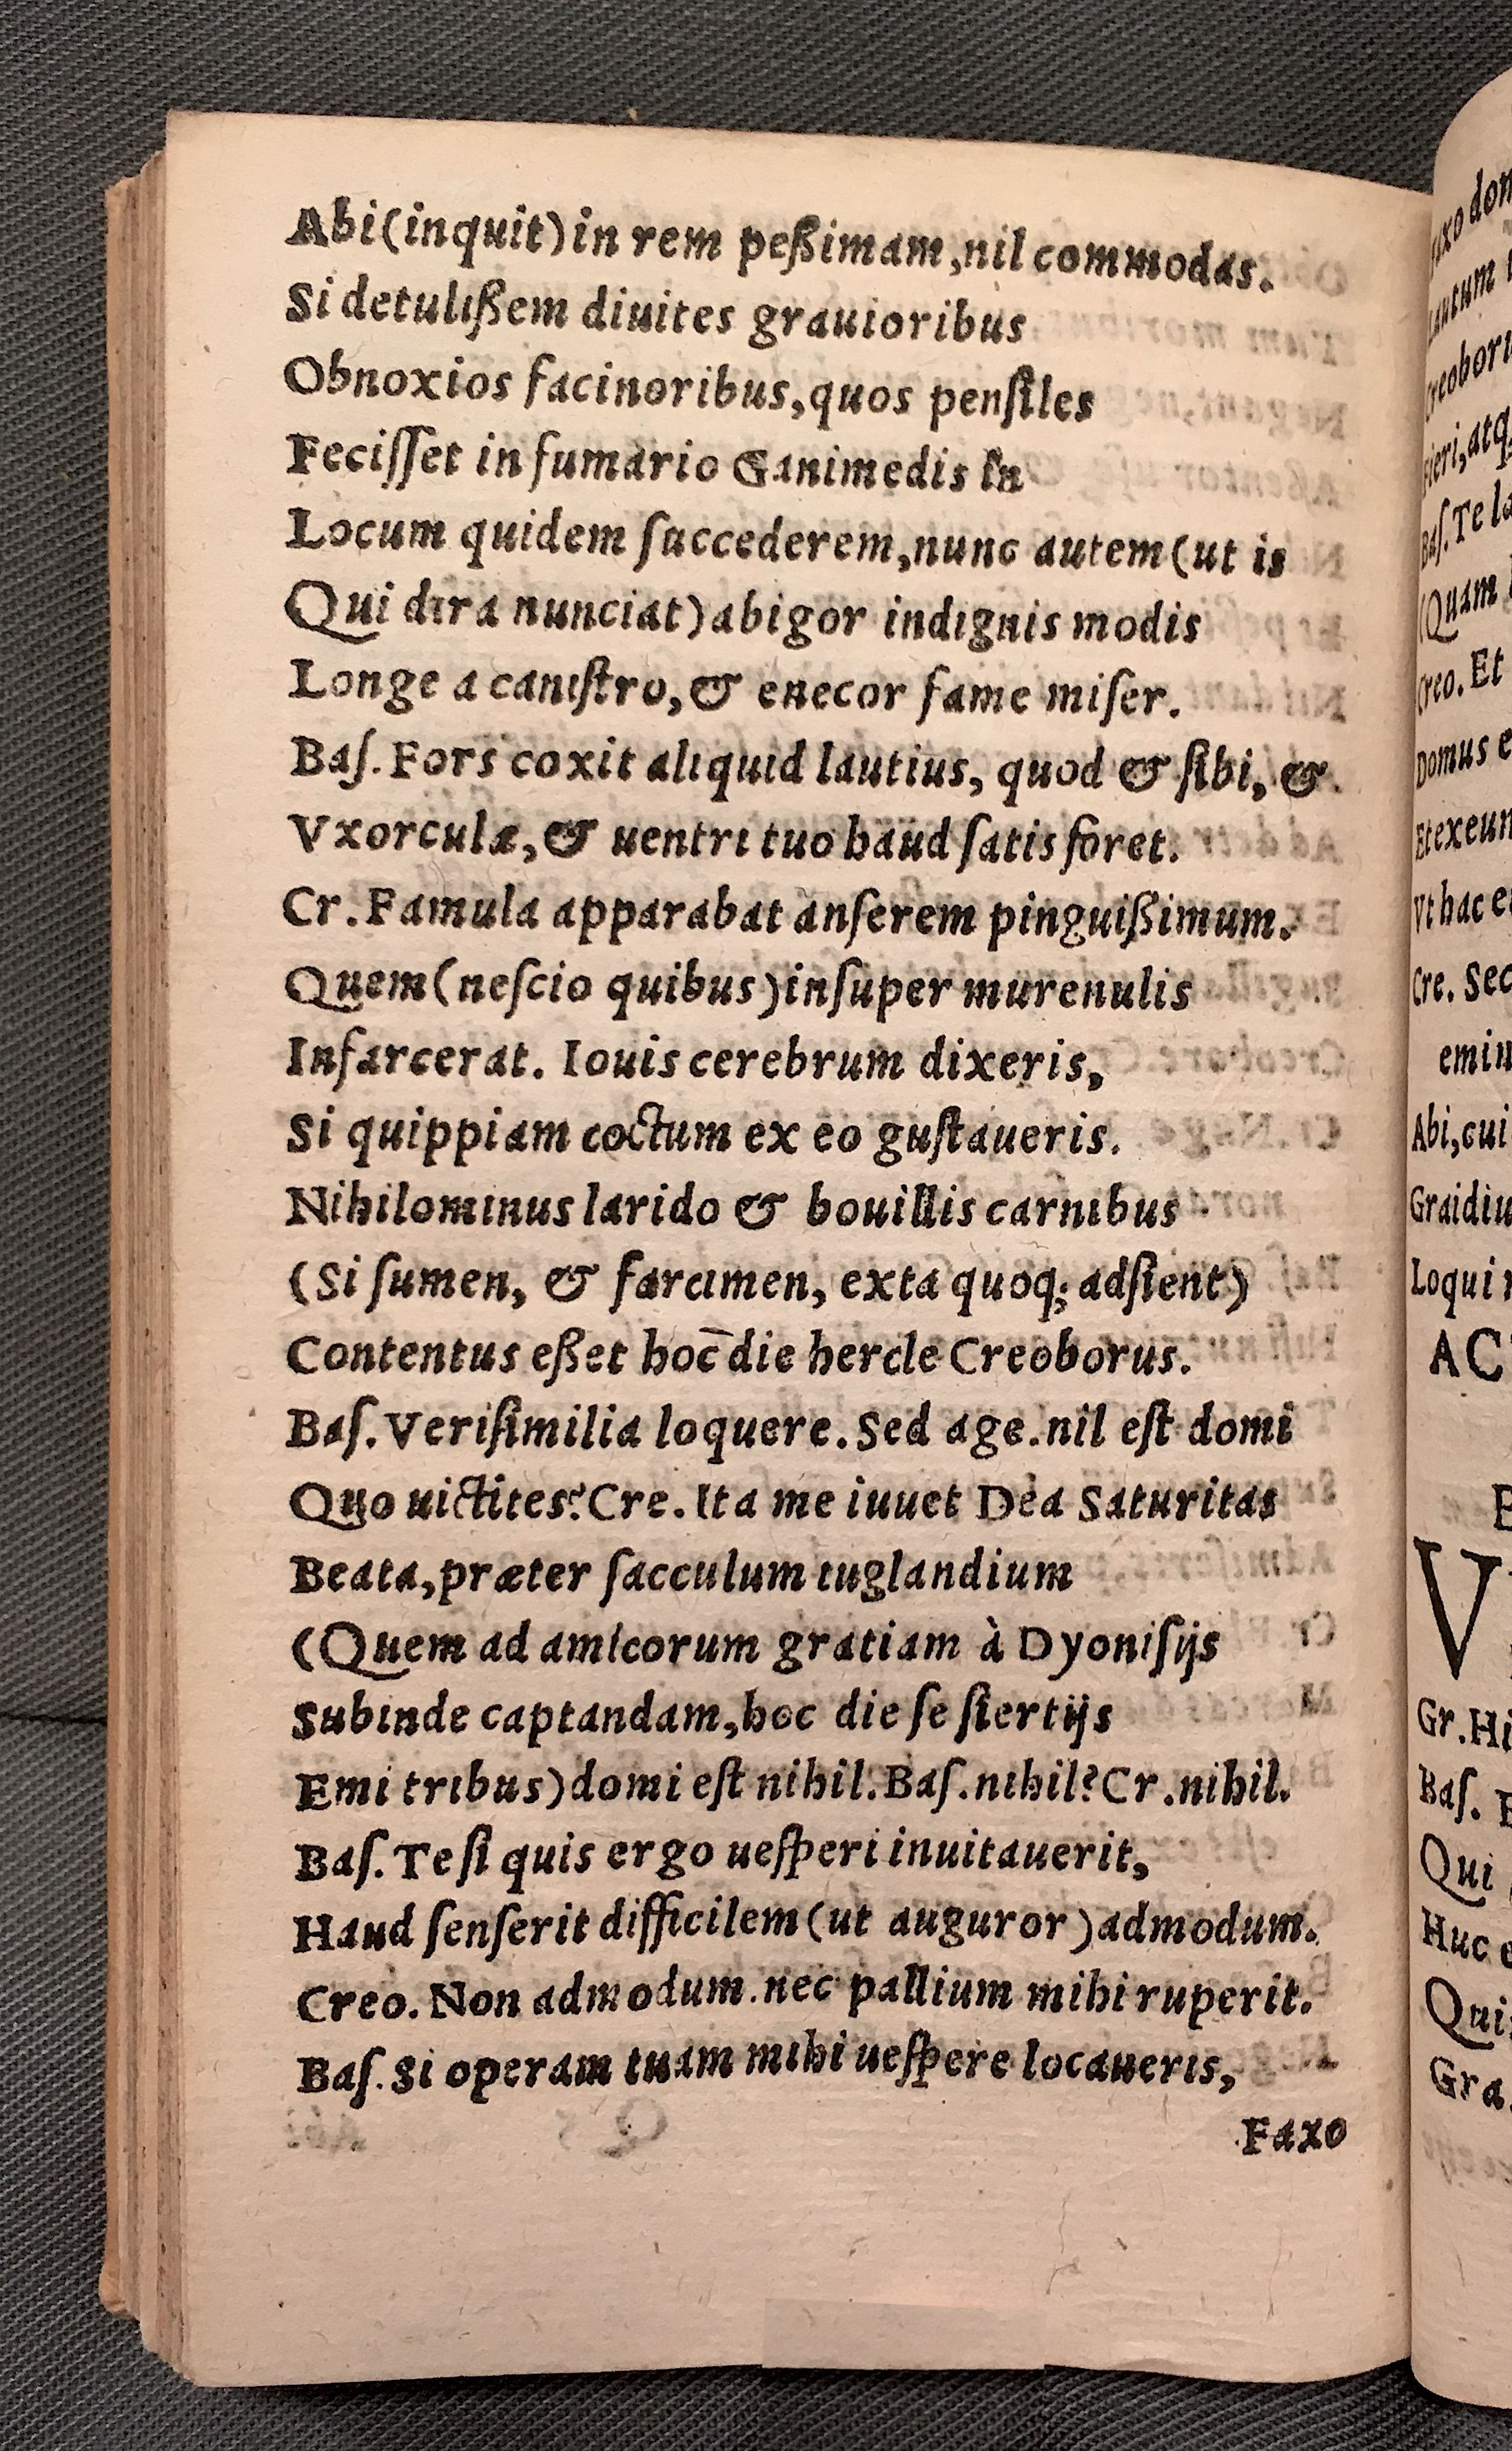 Abi(inquit)in rem peßimam,nil commodas.
Si detulißem diuites grauioribus
Obnoxios facinoribus,quos penſiles
Feciſſet in fumario Ganimedis in
Locum quidem ſuccederem,nunc autem(ut is
Qui dira nunciat)abigor indignis modis
Longe a caniſtro,& enecor fame miſer.
Baſ.Fors coxit aliquid lautius, quod & ſibi, &
Vxorculæ,& uentri tuo haud ſatis foret.
Cr.Famula apparabat anſerem pinguißimum.
Quem(neſcio quibus)inſuper murenulis
Infarcerat. Iouis cerebrum dixeris,
Si quippiam coctum ex eo guſtaueris.
Nihilominus larido & bouillis carnibus
(Si ſumen, & farcimen, exta quoq; adſient)
Contentus eßet hoc̄ die hercle Creoborus.
Baſ.Veriſimilia loquere.Sed age.nil eſt domi
Quo uictites?Cre.Ita me iuuet Dea Saturitas
Beata,præter ſacculum iuglandium
(Quem ad amicorum gratiam à Dyoniſijs
Subinde captandam,hoc die ſe ſtertijs
Emi tribus)domi eſt nihil.Baſ.nihil?Cr.nihil.
Baſ.Te ſi quis ergo ueſperi inuitauerit,
Haud ſenſerit difficilem(ut auguror)admodum.
Creo.Non admodum.nec pallium mihi ruperit.
Baſ.Si operam tuam mihi ueſpere locaueris,
Faxo
Creoboru
Baſ.Te
(Quam
Creo.Et
Domus
Vt hac
Cre. Sec
Abi,cui
Loqui
AC
V
Gr.Hi
Baſ.
Qui
Huc
Gra.